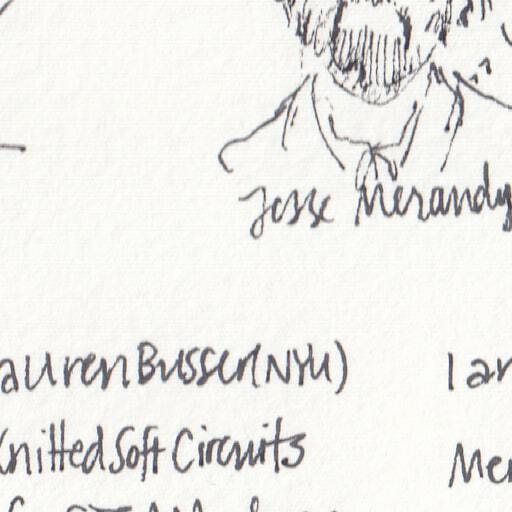 Jesse Merandy
Lauren Busser (NYU)
Ian
Knitted Soft Circuits
Mer